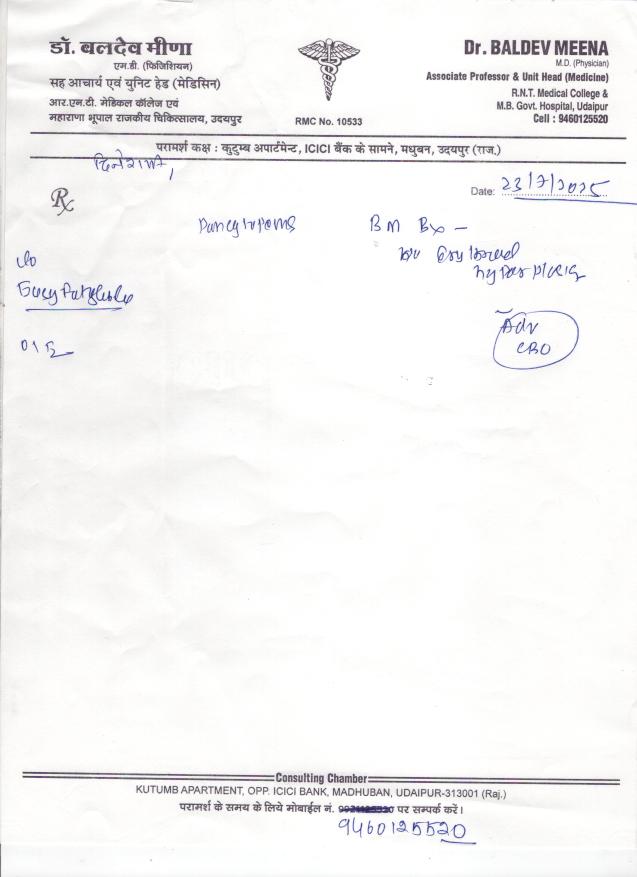 डॉ. बलदेव मीणा
एम.डी. (फिजिशियन)
सह आचार्य एवं युनिट हेड (मेडिसिन)
आर.एन.टी. मेडिकल कॉलेज एवं
महाराणा भूपाल राजकीय चिकित्सालय, उदयपुर
RMC No. 10533
Dr. BALDEV MEENA
M.D. (Physician)
Associate Professor & Unit Head (Medicine)
R.N.T. Medical College &
M.B. Govt. Hospital, Udaipur
Cell : 9460125520
परामर्श कक्ष : कुटुम्ब अपार्टमेन्ट, ICICI बैंक के सामने, मधुबन, उदयपुर (राज.)
Rx
Date: 23/7/2025
BM Bx -
Adv
CBO
Consulting Chamber
KUTUMB APARTMENT, OPP. ICICI BANK, MADHUBAN, UDAIPUR-313001 (Raj.)
परामर्श के समय के लिये मोबाईल नं. पर सम्पर्क करें।
9460125520